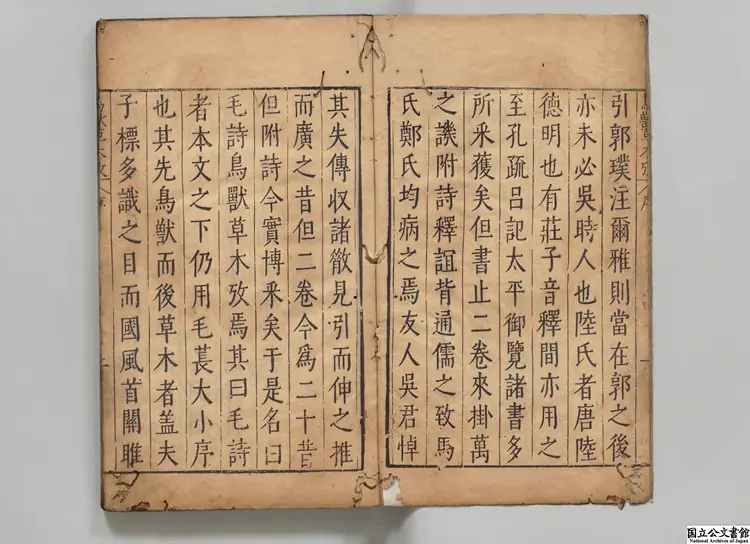 引郭璞注爾雅則當在郭之後
亦未必吳時人也陸氏者唐陸
德明也有莊子音釋間亦用之
至孔疏呂記太平御覽諸書多
所釆獲矣但書止二卷來掛萬
之譏附詩釋誼背通儒之致馬
氏鄭氏均病之焉友人吳君悼
其失傳収諸散見引而伸之推
而廣之昔但二卷今爲二十昔
但附詩今實博釆矣于是名曰
毛詩鳥獸草木攷焉其曰毛詩
者本文之下仍用毛萇大小序
也其先鳥獸而後草木者盖夫
子標多識之目而國風首關雎
国立公文書館
National Archives of Japan